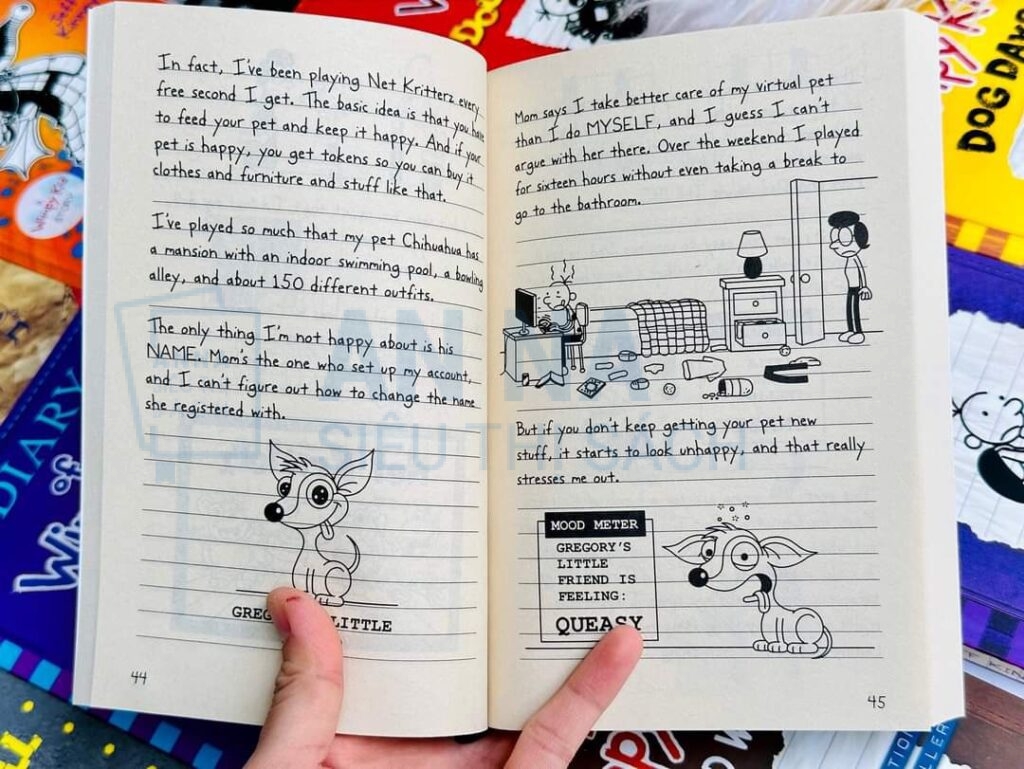 In fact, I've been playing Net Kritterz every
free second I get. The basic idea is that you have
to feed your pet and keep it happy. And if your
pet is happy, you get tokens so you can buy it
clothes and furniture and stuff like that.
I've played so much that my pet Chihuahua has
a mansion with an indoor swimming pool, a bowling
alley, and about 150 different outfits.
The only thing I'm not happy about is his
NAME. Mom's the one who set up my account,
and I can't figure out how to change the name
she registered with.
LITTLE
44
Mom says I take better care of my virtual pet
than I do MYSELF, and I guess I can't
argue with her there. Over the weekend I played
for sixteen hours without even taking a break to
go to the bathroom.
But if you don't keep getting your pet new
stuff, it starts to look unhappy, and that really
stresses me out.
MOOD METER
GREGORY'S
LITTLE
FRIEND IS
FEELING:
QUEASY
45
AN NA
SIÊU THỊ SÁCH
DOG DAYS
Wimpy Kid
DIARY